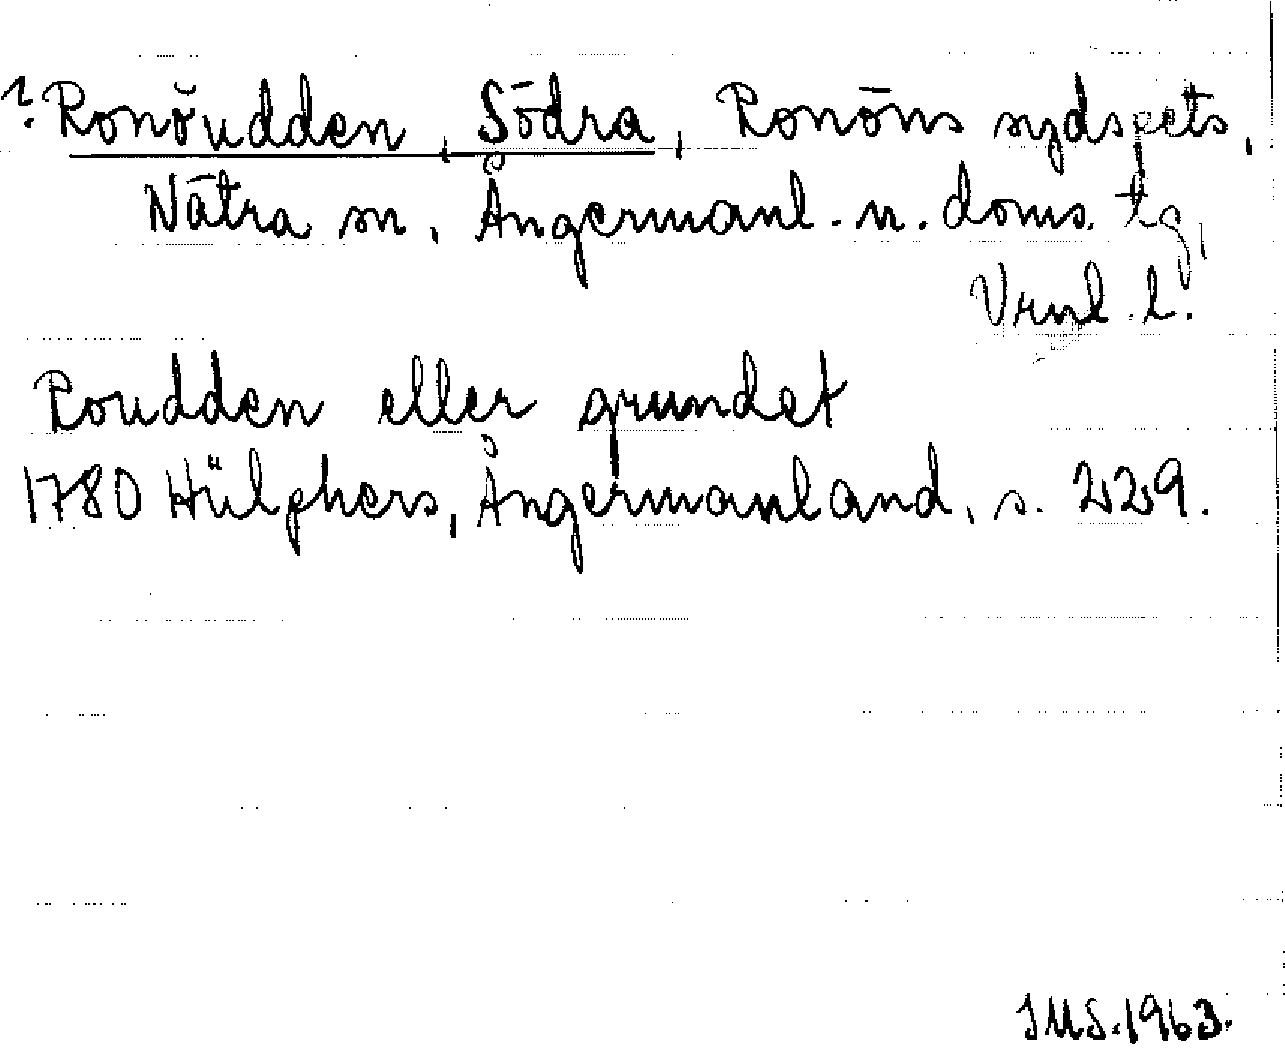 ? Ronöudden, Södra, Ronöns sydspets,
Nätra sn, Ångermanl. n. doms. tg,
Vrnl. l.
Roudden eller grundet
1780 Hülphers, Ångermanland, s. 229.
JMS. 1963.